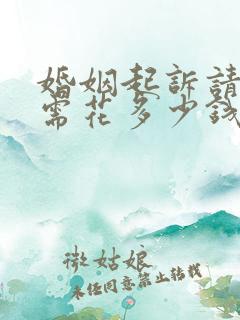 婚姻起訴請
需花多少錢
微姑娘
未经同意禁止转载